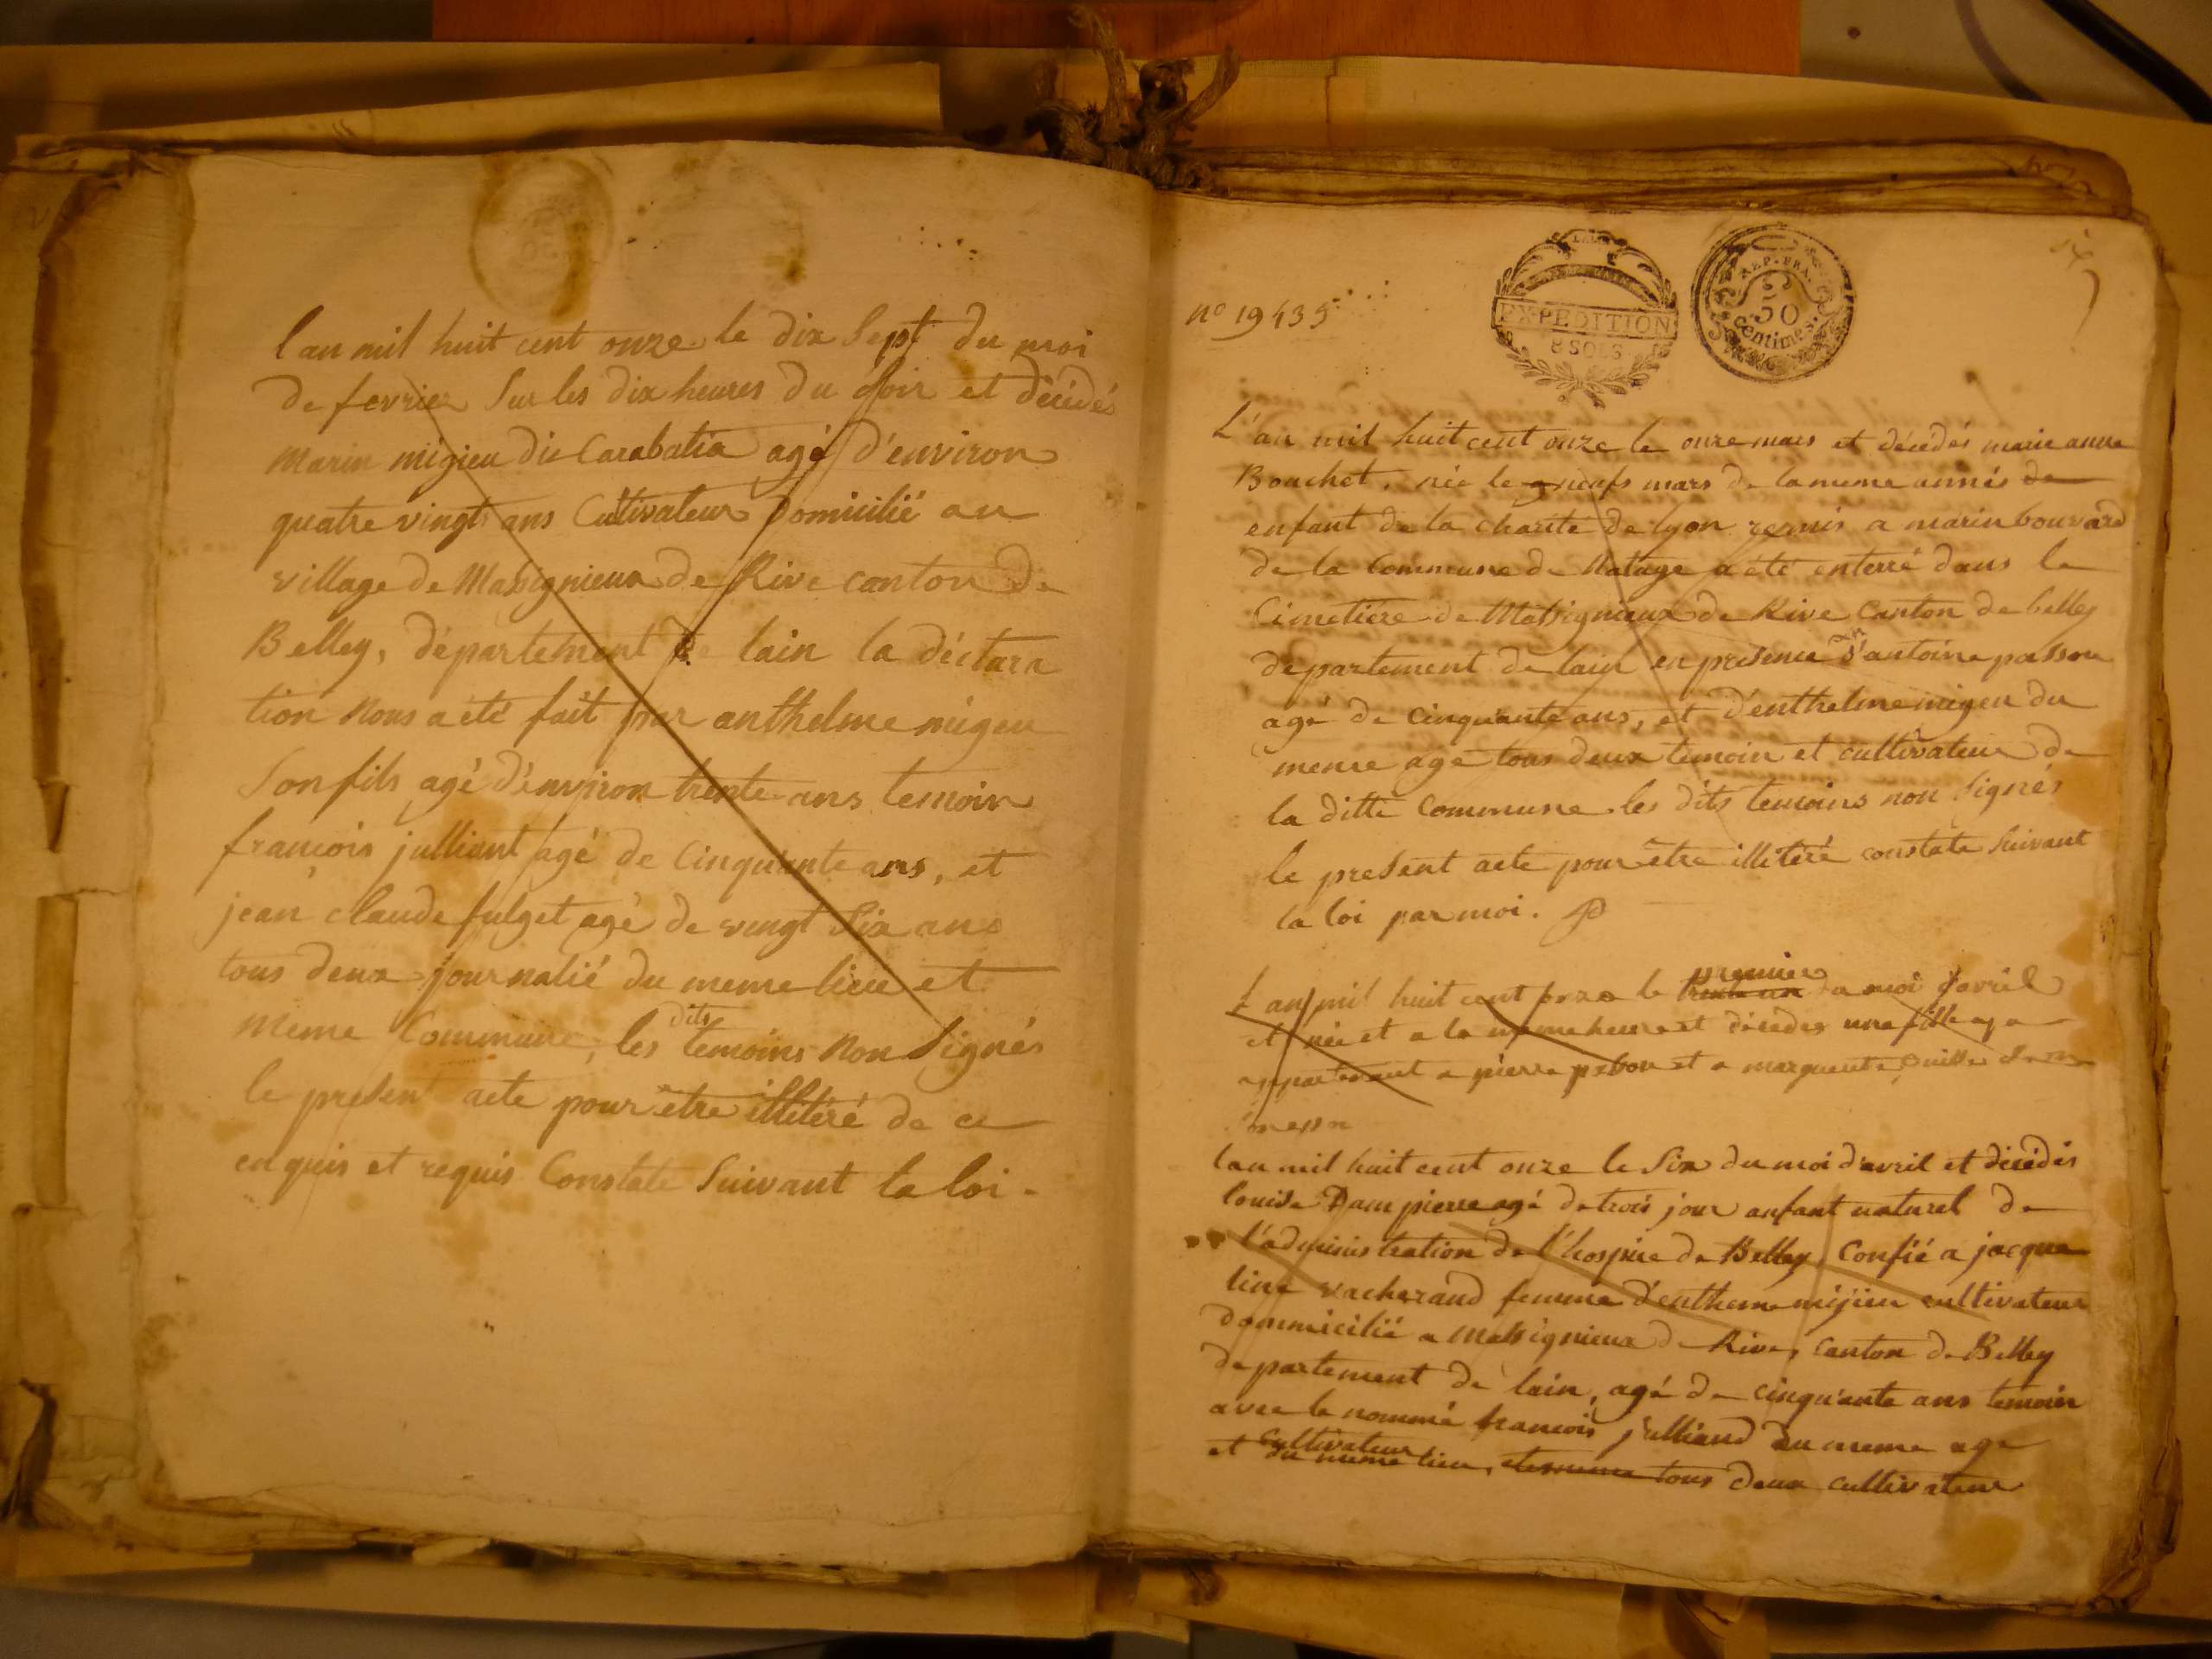 lan mil huit cent onze le dix Sept du moi
de fevrier Sur les dix heures du Soir et décédés
marin migieu dit Carabatia agé d'environ
quatre vingt ans Cultivateur Domicilié au
village de Massignieux de Rive canton de
Belley, département de lain la déclara
tion nous a été fait par anthelme migeu
Son fils agé d'environ trente ans temoin
françois julliant agé de Cinquante ans, et
jean claude fulget agé de vingt Six ans
tous deux journalié du meme lieu et
meme Commune, les dits temoins non Signés
le présent acte pour etre illitéré de ce
enquis et requis Constate Suivant la loi.
n° 19435
EXPEDITION
8 SOLS
REP. FRA.
50
centimes.
L'an mil huit cent onze le onze mars et décédés marie anne
Bouchet, née le neufs mars de la meme annés de
enfant de la charite de lyon remis a marin bouvard
de la Commune de Natage a été enterré dans le
Cimetiere de Massignieux de Rive Canton de belley
departement de lain en presence d'antoine passon
agé de Cinquante ans, et d'enthelme migeu du
meme age tous deux temoin et cultivateur de
la ditte Commune les dits temoins non Signés
le present acte pour etre illitéré constate Suivant
la loi par moi.
L'an mil huit cent onze le premier du moi d'avril
et née et a la meme heure et décédés une fille
appartenant a pierre et a marguerite
lan mil huit cent onze le Six du moi d'avril et décédés
louise Dampierre agé de trois jour anfant naturel de
l'administration de l'hospice de Belley Confié a jacque
line vacherand femme d'enthelme mijieu cultivateur
dommicilié a Massignieux de Rive, Canton de Belley
departement de lain, agé de cinquante ans temoin
avec le nommé francois julliand du meme age
et cultivateur du meme lieu, tous deux cultivateur